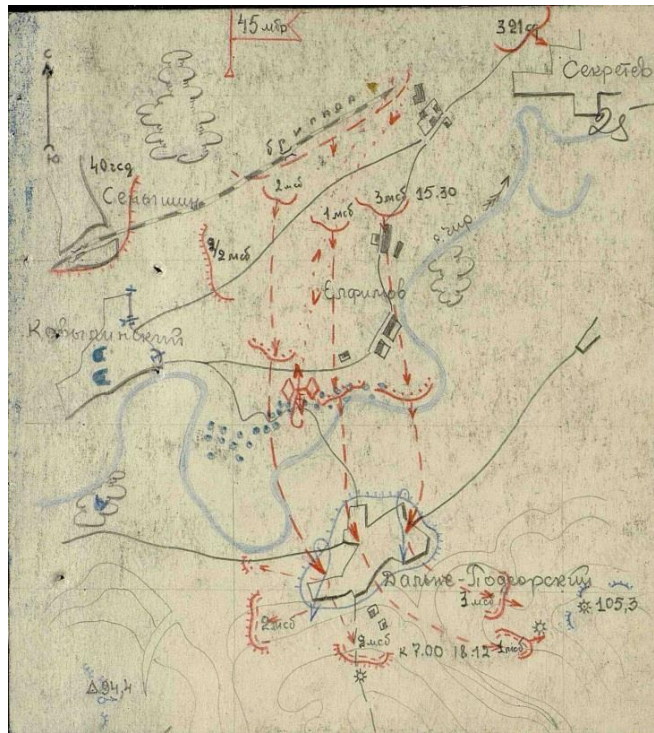 45 мбр
321 сд
Секретев
25
С
Ю
бригада
40 гсд
Сенышин
2 мсб
1 мсб
3 мсб 15.30
2 мсб
р. Чир
Елфимов
Ковыринский
Дальне-Подгорский
3 мсб
105,3
2 мсб
2 мсб
к 7.00 18.12
1 мсб
94,4